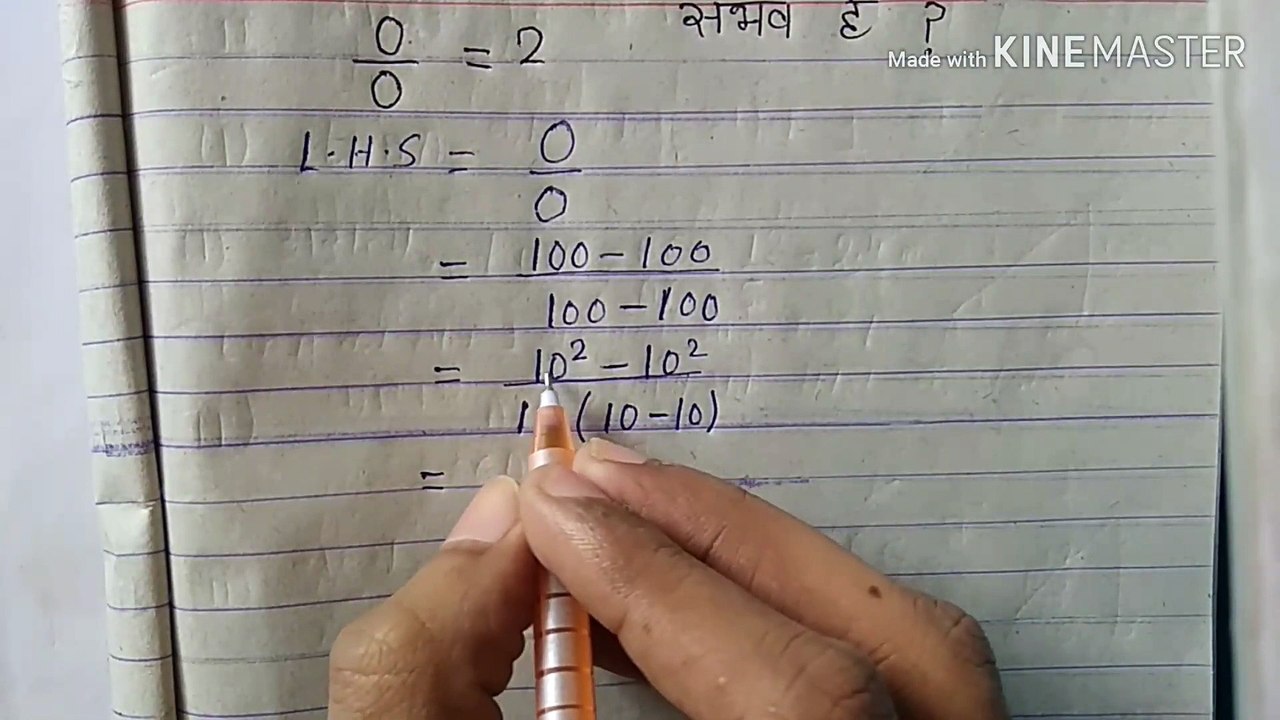 0/0 = 2 संभव है ?
Made with KINEMASTER
L.H.S = 0/0
= 100 - 100
100 - 100
= 10² - 10²
1 (10 - 10)
=